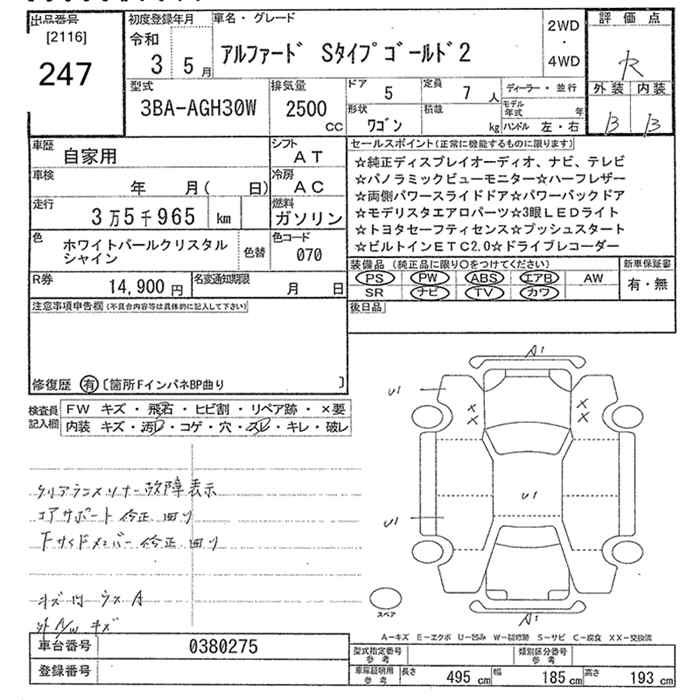 出品番号 初度登録年月 車名・グレード 2WD・4WD 評価点
[2116]
247
令和 3 5月
アルファード Sタイプゴールド2
R
外装 内装
B B
型式 排気量 ドア 5 定員 7人 ディーラー・並行
3BA-AGH30W 2500cc
形状 ワゴン 積載 kg モデル年式 年
ハンドル 左・右
車歴 自家用 シフト AT
車検 年 月( 日) 冷房 AC
走行 3万5千965 km 燃料 ガソリン
色 ホワイトパールクリスタルシャイン 色替 色コード 070
R券 14,900円 名変通知期限 月 日
セールスポイント(正常に機能するものに限ります)
☆純正ディスプレイオーディオ、ナビ、テレビ
☆パノラミックビューモニター☆ハーフレザー
☆両側パワースライドドア☆パワーバックドア
☆モデリスタエアロパーツ☆3眼LEDライト
☆トヨタセーフティセンス☆プッシュスタート
☆ビルトインETC2.0☆ドライブレコーダー
装備品(純正品に限り○をつけてください) 新車保証書
PS PW ABS エアB AW 有・無
SR ナビ TV カワ
後日品
注意事項申告欄(不具合内容等は具体的に記入して下さい)
修復歴 有 〔箇所FインパネBP曲り 〕
検査員記入欄 FW キズ・飛石・ヒビ割・リペア跡・×要
内装 キズ・汚レ・コゲ・穴・スレ・キレ・破レ
クリアランスソナー故障表示
コアサポート 修正 曲り
Fサイドメンバー 修正 曲り
キズ凹 ウス A
外 N/W キズ
A1
U1
×
×
×
×
U1
U1
A1
スペア
A-キズ E-エクボ U-凹み W-補修跡 S-サビ C-腐食 XX-交換済
車台番号 0380275
登録番号
型式指定番号 参考 類別区分番号 参考
車庫証明用 参考 長さ 495 cm 幅 185 cm 高さ 193 cm